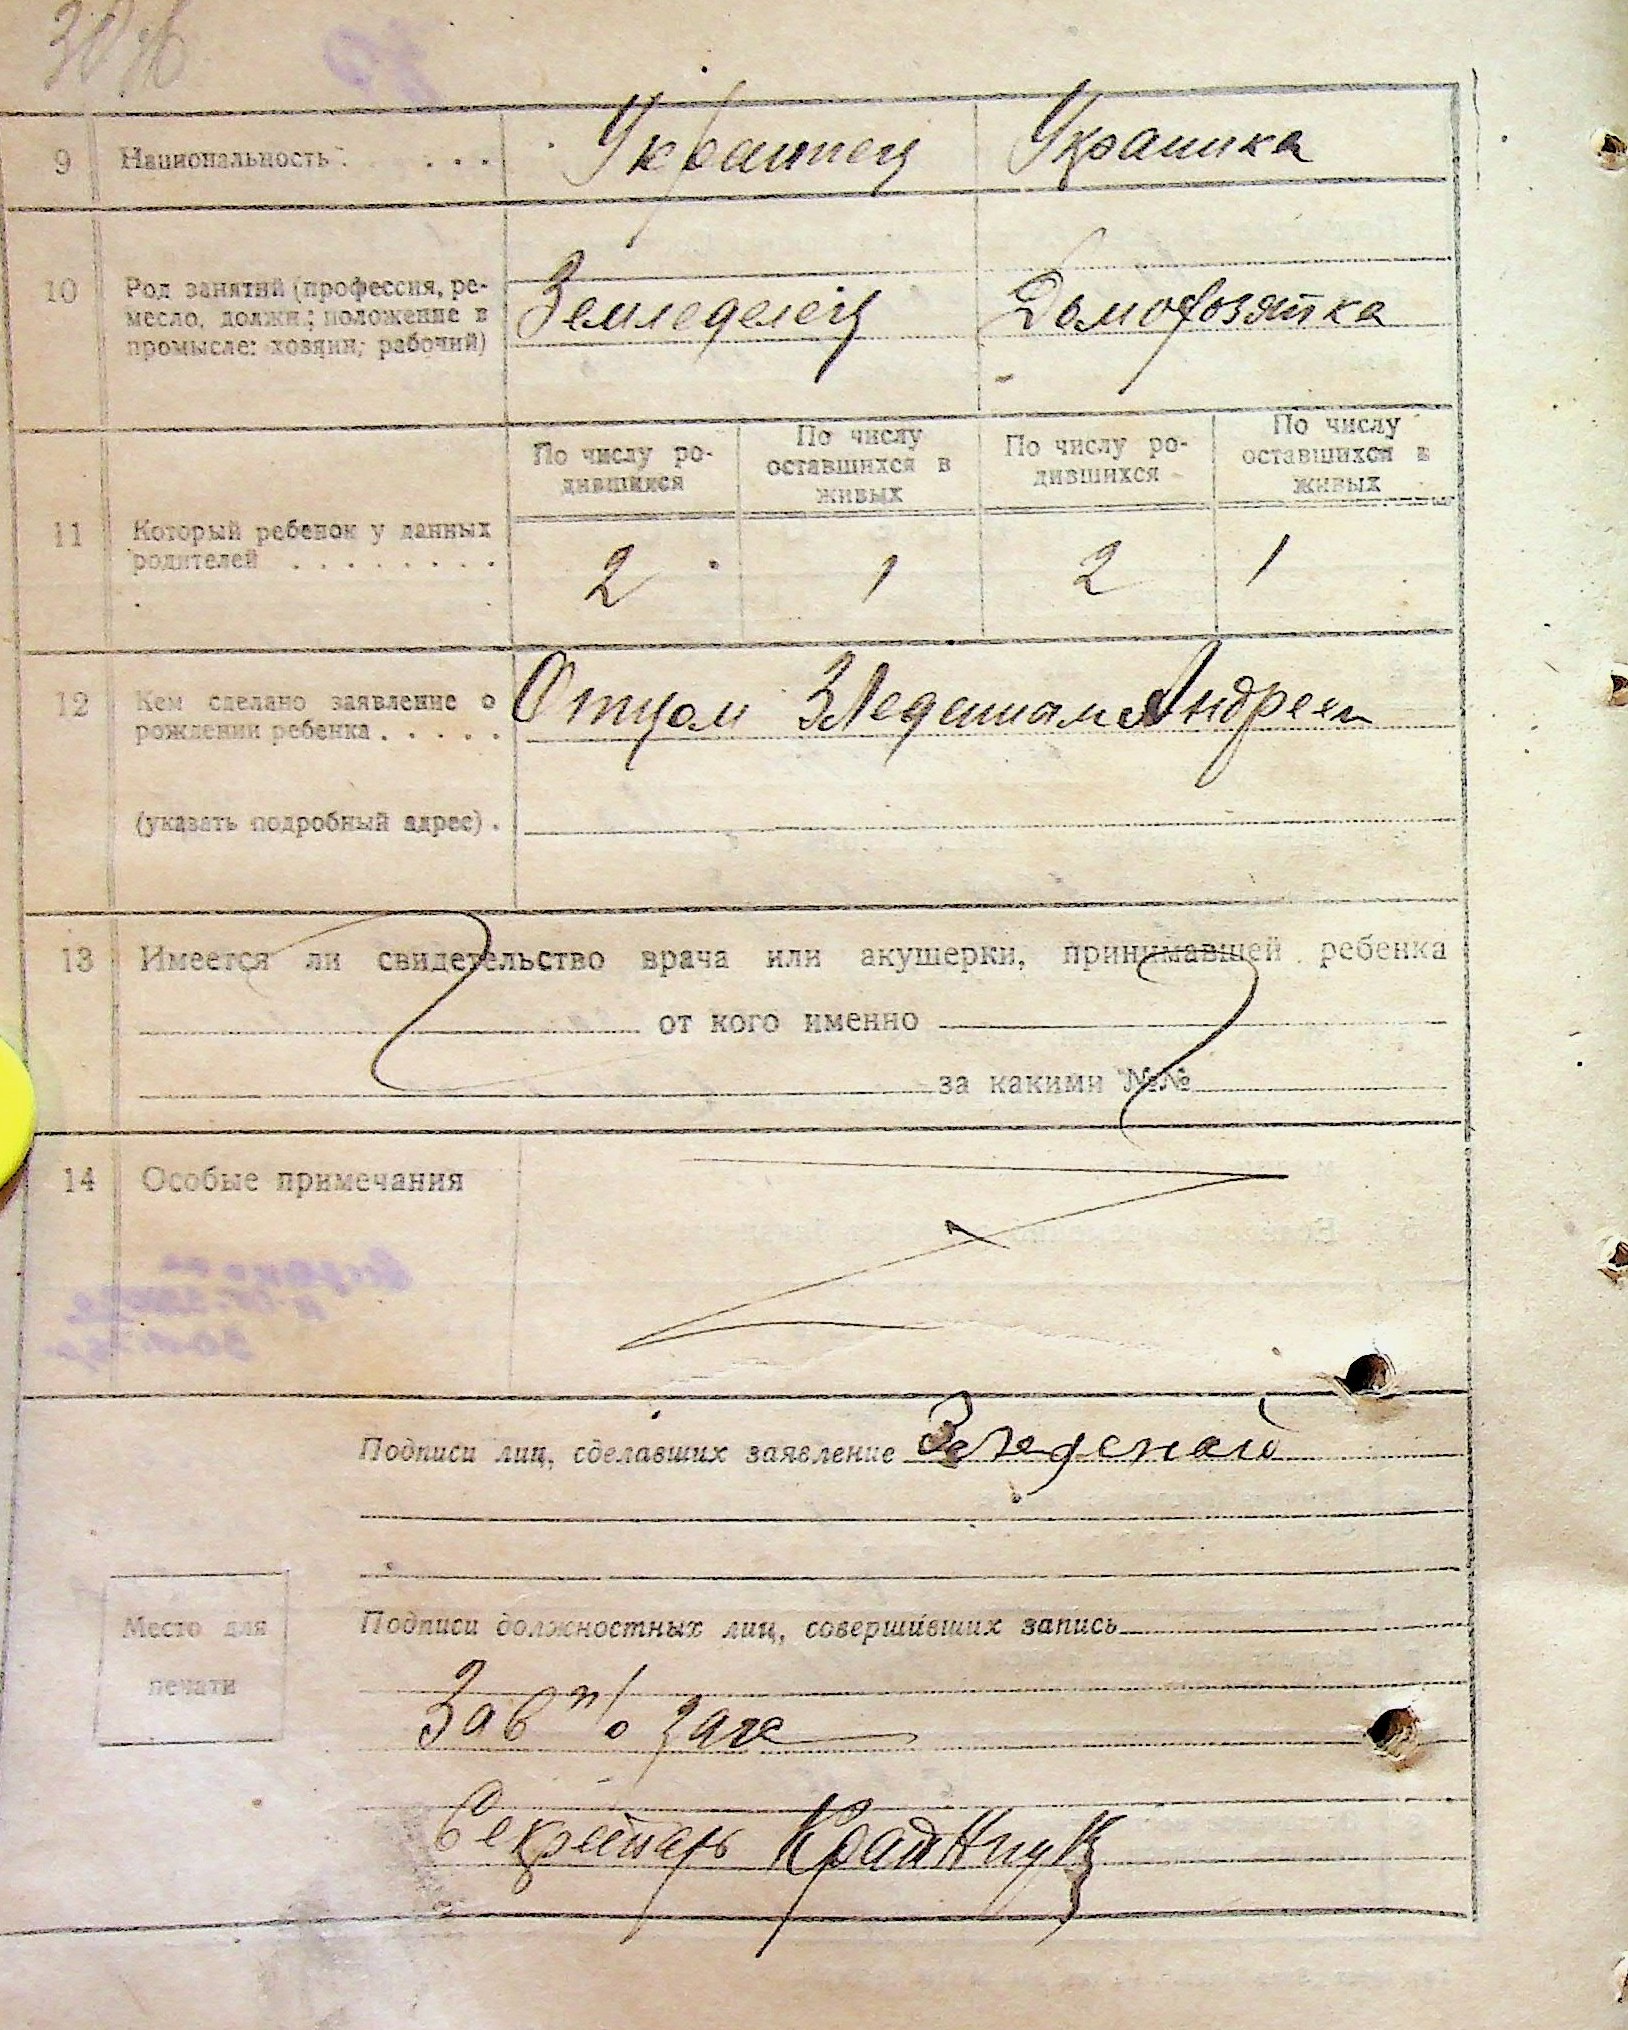 9 Национальность . . . Украинец Украинка
10 Род занятий (профессия, ре-
месло, должн.; положение в
промысле: хозяин; рабочий)
Земледелец Домохозяйка
По числу ро-
дившихся
По числу
оставшихся в
живых
По числу ро-
дившихся
По числу
оставшихся в
живых
11 Который ребенок у данных
родителей . . . . . . . .
2 1 2 1
12 Кем сделано заявление о
рождении ребенка . . . . .
Отцом Андреем
(указать подробный адрес) .
13 Имеется ли свидетельство врача или акушерки, принимавшей ребенка
от кого именно
за какими №№
14 Особые примечания
Подписи лиц, сделавших заявление
Место для
печати
Подписи должностных лиц, совершивших запись
Зав п/о загс
Секретарь